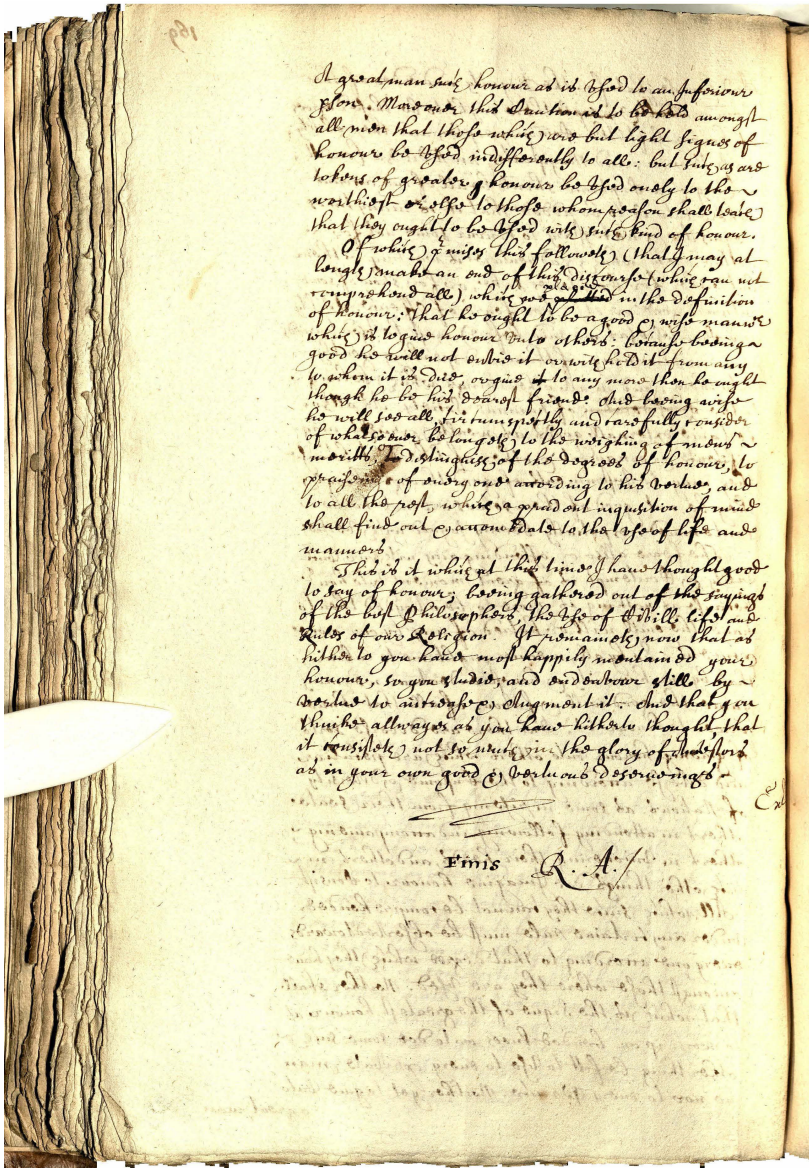 A great man such honour as is vsed to an Inferiour
pson. Moreouer this Caution is to be held amongst
all men that those which are but light signes of
honour be vsed indifferently to all: but such as are
tokens of greater honour be vsed onely to the
worthiest or else to those whom reason shall teach
that they ought to be vsed with such kind of honour.
Of which pmises this followeth (that I may at
length make an end of this discourse (which can not
comprehend all) which we placed in the definition
of honour: that he ought to be a good & wise man
which is to giue honour vnto others: because beeing
good he will not envie it or with hold it from any
to whom it is due, or giue it to any more then he ought
though he be his dearest friend. And beeing wise
he will see all circumspectly and carefully consider
of whatsoeuer belongeth to the weighing of mens
meritts, to distinguish of the degrees of honour, to
praiseing of euery one according to his vertue, and
to all the rest, which a prudent inquisition of mind
shall find out & accomodate to the vse of life and
manners
This is it which at this time I haue thought good
to say of honour; beeing gathered out of the sayings
of the best Philosophers, the vse of Ciuill life and
Rules of our Religion. It remaineth now that as
hitherto you haue most happily mentained your
honour, so you studie, and endeavour still by
vertue to increase & Augment it. And that you
thinke allwayes as you haue hitherto thought that
it consisteth not so much in the glory of Ancestors
as in your own good & vertuous deserueings
Finis R. A.